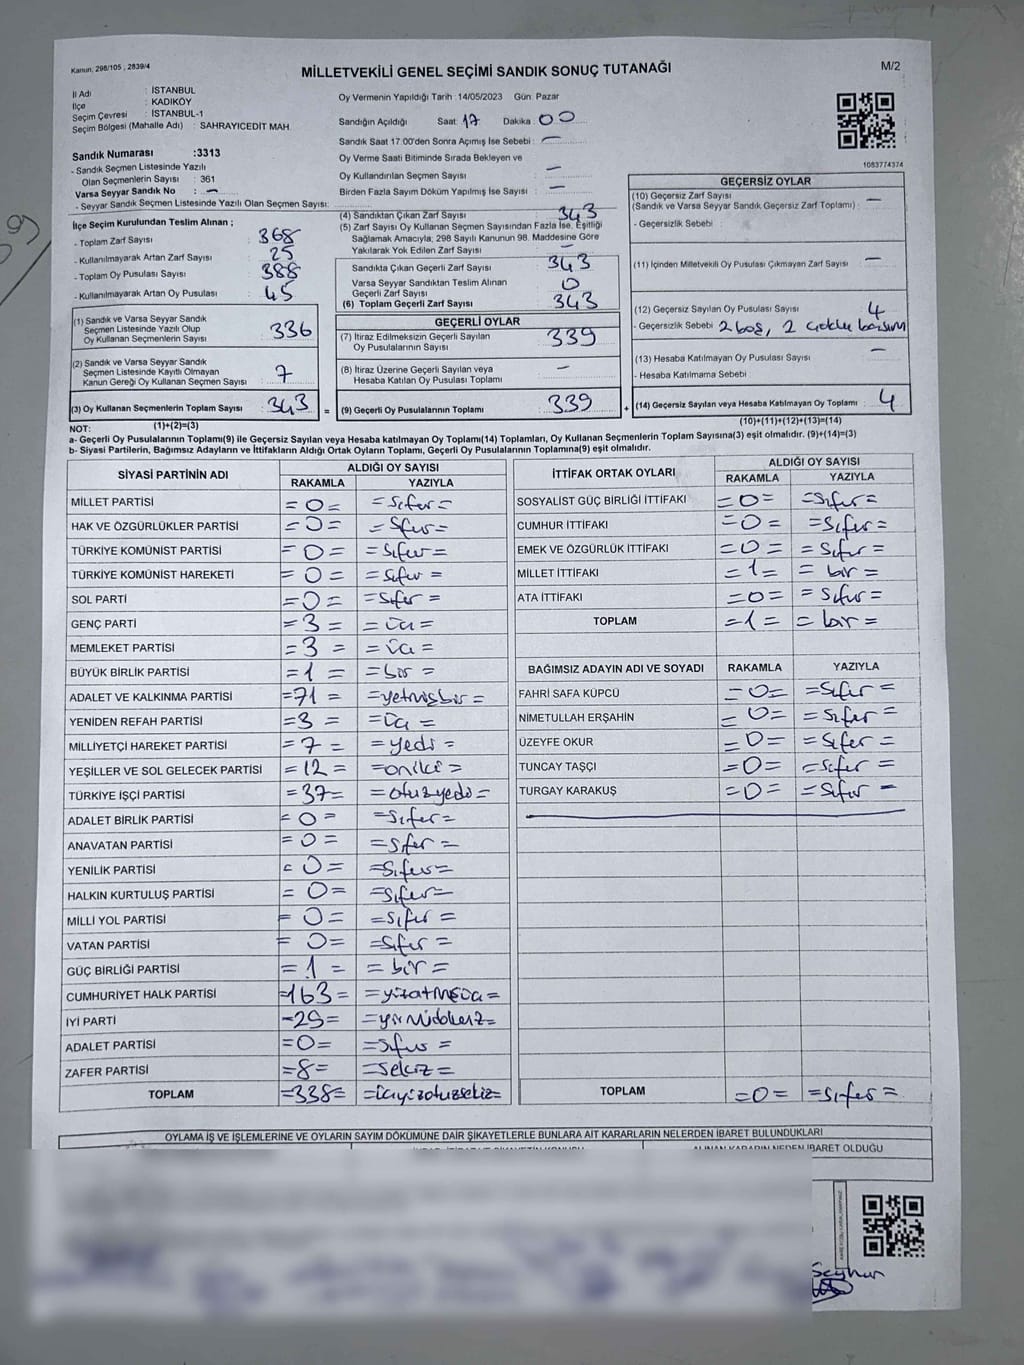 Kanun, 298/105 , 2839/4
MİLLETVEKİLİ GENEL SEÇİMİ SANDIK SONUÇ TUTANAĞI
M/2
İl Adı : İSTANBUL
İlçe : KADIKÖY
Seçim Çevresi : İSTANBUL-1
Seçim Bölgesi (Mahalle Adı) : SAHRAYICEDİT MAH.
Oy Vermenin Yapıldığı Tarih :14/05/2023 Gün: Pazar
Sandığın Açıldığı Saat: 17 Dakika : 00
Sandık Saat 17:00'den Sonra Açımış İse Sebebi : —
Oy Verme Saati Bitiminde Sırada Bekleyen ve
Oy Kullandırılan Seçmen Sayısı : —
Birden Fazla Sayım Döküm Yapılmış İse Sayısı : —
1083774374
Sandık Numarası :3313
- Sandık Seçmen Listesinde Yazılı
Olan Seçmenlerin Sayısı : 361
Varsa Seyyar Sandık No : —
- Seyyar Sandık Seçmen Listesinde Yazılı Olan Seçmen Sayısı:
İlçe Seçim Kurulundan Teslim Alınan ;
- Toplam Zarf Sayısı 368
- Kullanılmayarak Artan Zarf Sayısı 25
- Toplam Oy Pusulası Sayısı 388
- Kullanılmayarak Artan Oy Pusulası 45
(1) Sandık ve Varsa Seyyar Sandık
Seçmen Listesinde Yazılı Olup
Oy Kullanan Seçmenlerin Sayısı 336
(2) Sandık ve Varsa Seyyar Sandık
Seçmen Listesinde Kayıtlı Olmayan
Kanun Gereği Oy Kullanan Seçmen Sayısı 7
(3) Oy Kullanan Seçmenlerin Toplam Sayısı 343 =
(1)+(2)=(3)
(4) Sandıktan Çıkan Zarf Sayısı 343
(5) Zarf Sayısı Oy Kullanan Seçmen Sayısından Fazla İse, Eşitliği
Sağlamak Amacıyla; 298 Sayılı Kanunun 98. Maddesine Göre
Yakılarak Yok Edilen Zarf Sayısı —
Sandıkta Çıkan Geçerli Zarf Sayısı 343
Varsa Seyyar Sandıktan Teslim Alınan
Geçerli Zarf Sayısı 0
(6) Toplam Geçerli Zarf Sayısı 343
GEÇERLİ OYLAR
(7) İtiraz Edilmeksizin Geçerli Sayılan
Oy Pusulalarının Sayısı 339
(8) İtiraz Üzerine Geçerli Sayılan veya
Hesaba Katılan Oy Pusulası Toplamı —
(9) Geçerli Oy Pusulalarının Toplamı 339 +
GEÇERSİZ OYLAR
(10) Geçersiz Zarf Sayısı
(Sandık ve Varsa Seyyar Sandık Geçersiz Zarf Toplamı) : —
- Geçersizlik Sebebi
(11) İçinden Milletvekili Oy Pusulası Çıkmayan Zarf Sayısı —
(12) Geçersiz Sayılan Oy Pusulası Sayısı : 4
- Geçersizlik Sebebi 2 boş, 2
(13) Hesaba Katılmayan Oy Pusulası Sayısı —
- Hesaba Katılmama Sebebi
(14) Geçersiz Sayılan veya Hesaba Katılmayan Oy Toplamı : 4
(10)+(11)+(12)+(13)=(14)
NOT:
a- Geçerli Oy Pusulalarının Toplamı(9) ile Geçersiz Sayılan veya Hesaba katılmayan Oy Toplamı(14) Toplamları, Oy Kullanan Seçmenlerin Toplam Sayısına(3) eşit olmalıdır. (9)+(14)=(3)
b- Siyasi Partilerin, Bağımsız Adayların ve İttifakların Aldığı Ortak Oyların Toplamı, Geçerli Oy Pusulalarının Toplamına(9) eşit olmalıdır.
SİYASİ PARTİNİN ADI ALDIĞI OY SAYISI
RAKAMLA YAZIYLA
MİLLET PARTİSİ =0= =Sıfır=
HAK VE ÖZGÜRLÜKLER PARTİSİ =0= =Sıfır=
TÜRKİYE KOMÜNİST PARTİSİ =0= =Sıfır=
TÜRKİYE KOMÜNİST HAREKETİ =0= =Sıfır=
SOL PARTİ =0= =Sıfır=
GENÇ PARTİ =3= =üç=
MEMLEKET PARTİSİ =3= =üç=
BÜYÜK BİRLİK PARTİSİ =1= =bir=
ADALET VE KALKINMA PARTİSİ =71= =yetmişbir=
YENİDEN REFAH PARTİSİ =3= =üç=
MİLLİYETÇİ HAREKET PARTİSİ =7= =yedi=
YEŞİLLER VE SOL GELECEK PARTİSİ =12= =oniki=
TÜRKİYE İŞÇİ PARTİSİ =37= =otuzyedi=
ADALET BİRLİK PARTİSİ =0= =Sıfır=
ANAVATAN PARTİSİ =0= =Sıfır=
YENİLİK PARTİSİ =0= =Sıfır=
HALKIN KURTULUŞ PARTİSİ =0= =Sıfır=
MİLLİ YOL PARTİSİ =0= =Sıfır=
VATAN PARTİSİ =0= =Sıfır=
GÜÇ BİRLİĞİ PARTİSİ =1= =bir=
CUMHURİYET HALK PARTİSİ =163= =yüzatmışüç=
İYİ PARTİ =29= =yirmidokuz=
ADALET PARTİSİ =0= =sıfır=
ZAFER PARTİSİ =8= =sekiz=
TOPLAM =338= =üçyüzotuzsekiz=
İTTİFAK ORTAK OYLARI ALDIĞI OY SAYISI
RAKAMLA YAZIYLA
SOSYALİST GÜÇ BİRLİĞİ İTTİFAKI =0= =Sıfır=
CUMHUR İTTİFAKI =0= =Sıfır=
EMEK VE ÖZGÜRLÜK İTTİFAKI =0= =Sıfır=
MİLLET İTTİFAKI =1= =bir=
ATA İTTİFAKI =0= =Sıfır=
TOPLAM =1= =bir=
BAĞIMSIZ ADAYIN ADI VE SOYADI RAKAMLA YAZIYLA
FAHRİ SAFA KÜPCÜ =0= =Sıfır=
NİMETULLAH ERŞAHİN =0= =Sıfır=
ÜZEYFE OKUR =0= =Sıfır=
TUNCAY TAŞÇI =0= =Sıfır=
TURGAY KARAKUŞ =0= =Sıfır=
TOPLAM =0= =sıfır=
OYLAMA İŞ VE İŞLEMLERİNE VE OYLARIN SAYIM DÖKÜMÜNE DAİR ŞİKAYETLERLE BUNLARA AİT KARARLARIN NELERDEN İBARET BULUNDUKLARI
ALINAN KARARIN NEDEN İBARET OLDUĞU
Seyhun